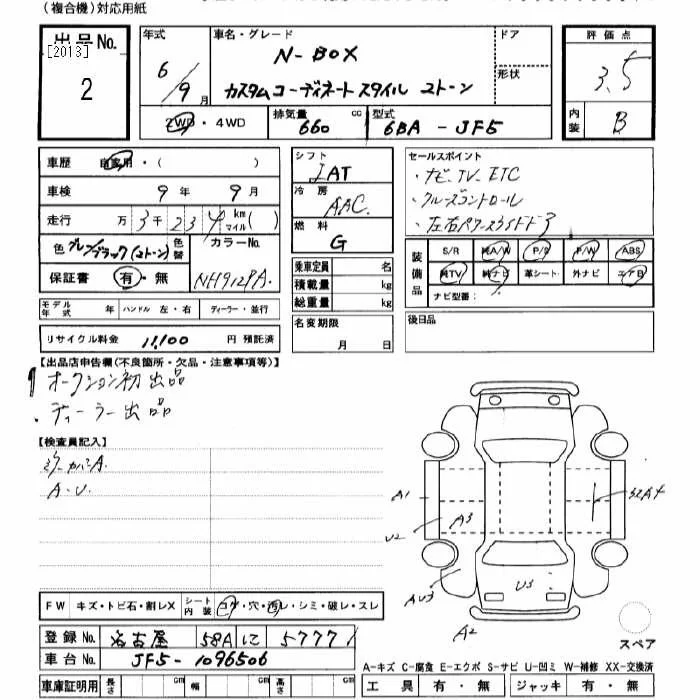 (複合機)対応用紙
出品No. 年式 車名・グレード ドア 評価点
[2013] N-BOX
2 6/9月 カスタムコーディネートスタイル 2トーン 形状 3.5
2WD・4WD 排気量 660 cc 型式 6BA - JF5 内装 B
車歴 自家用・( ) シフト IAT セールスポイント
・ナビ、TV、ETC
車検 9年 9月 冷房 AAC ・クルーズコントロール
走行 万3千234 km マイル( ) 燃料 G ・左右パワースライドドア
色 (2トーン) 色替 カラーNo.
保証書 有・無 NH912PA
乗車定員 名
積載量 kg
総重量 kg
装備品 S/R 純A/W P/S P/W ABS
純TV 純ナビ 革シート 外ナビ エアB
ナビ型番:
モデル年式 年 ハンドル 左・右 ディーラー・並行
名変期限 月 日
後日品
リサイクル料金 11,100 円 預託済
【出品店申告欄(不良箇所・欠品・注意事項等)】
オークション初出品
・ディーラー出品
【検査員記入】
A.
A・U.
A1
U2
A3
AU3
U3
A2
スペア
FW キズ・トビ石・割レX シート内装 コゲ・穴・汚レ・シミ・破レ・スレ
登録No. 名古屋 58A に 57771
車台No. JF5-1096506
A-キズ C-腐食 E-エクボ S-サビ U-凹ミ W-補修 XX-交換済
車庫証明用 長さ cm 幅 cm 高さ cm 工具 有・無 ジャッキ 有・無